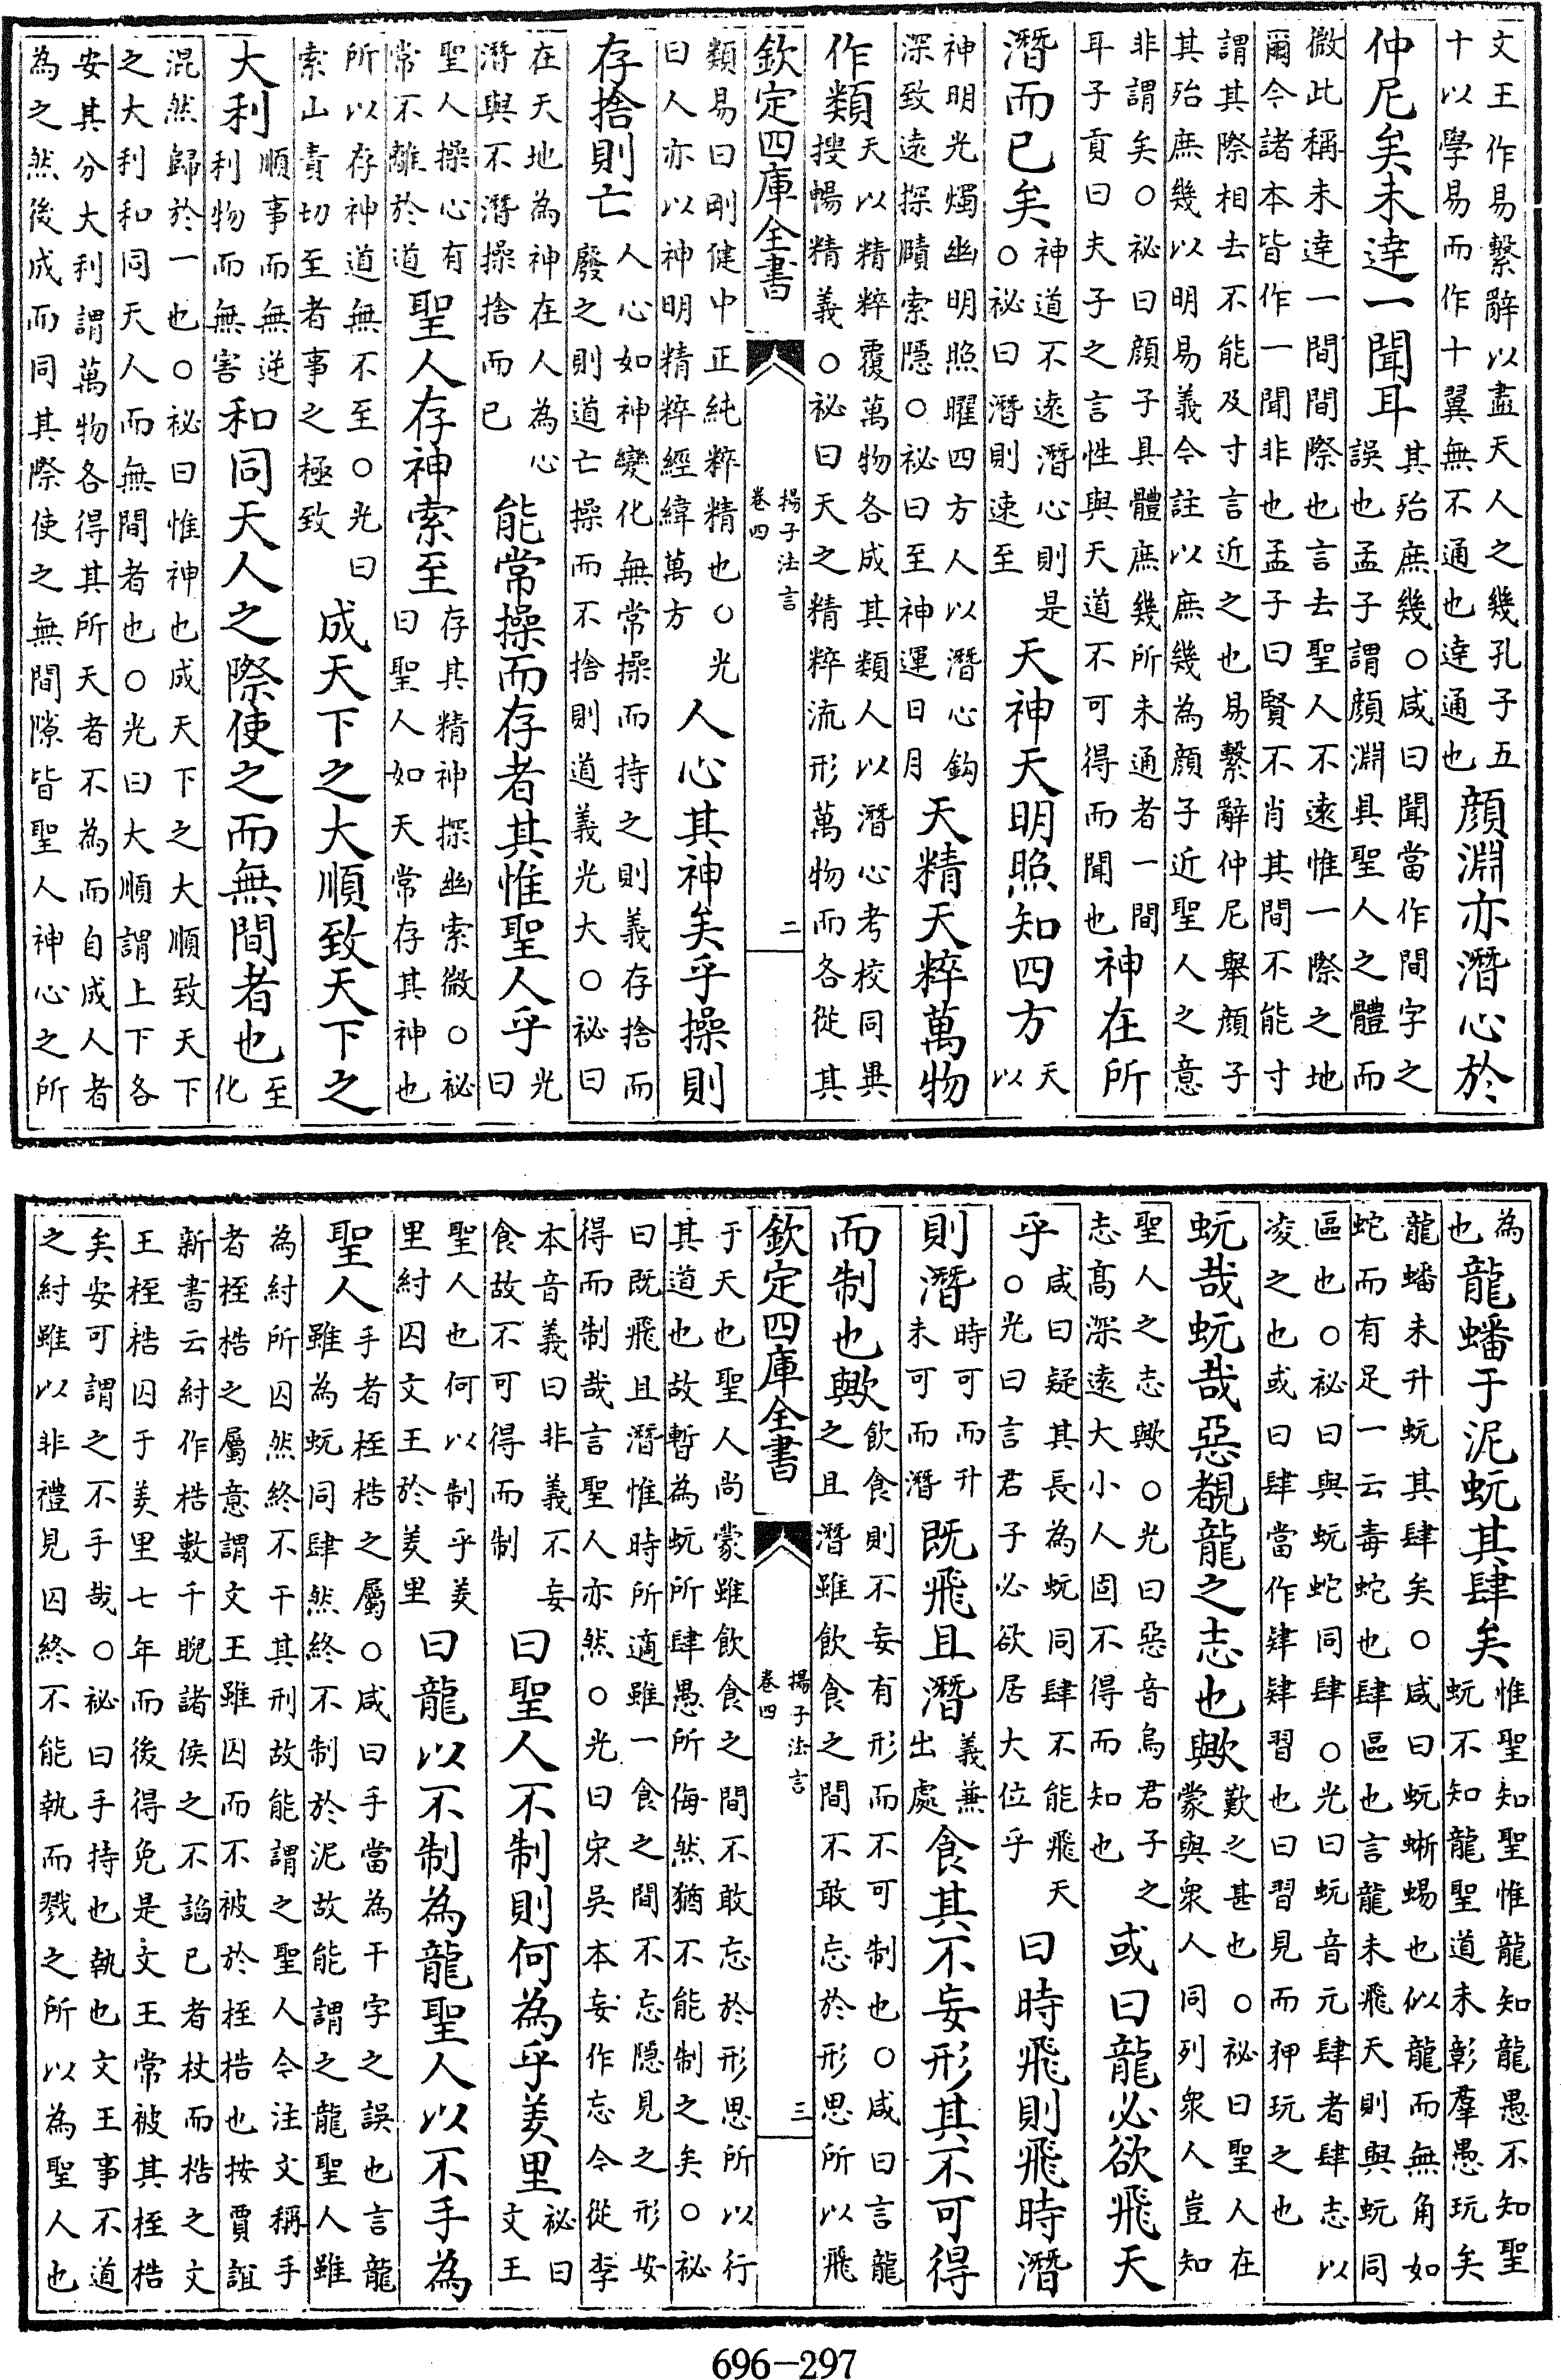 文王作易繫辭以盡天人之幾孔子五十以學易而作十翼無不通也達通也顔淵亦潛心於
仲尼矣未達一聞耳其殆庶幾○咸曰聞當作間字之誤也孟子謂顔淵具聖人之體而
微此稱未達一間間際也言去聖人不遠惟一際之地爾今諸本皆作一聞非也孟子曰賢不肖其間不能寸
謂其際相去不能及寸言近之也易繫辭仲尼舉顔子其殆庶幾以明易義今註以庶幾為顔子近聖人之意
非謂矣○祕曰顔子具體庶幾所未通者一間耳子貢曰夫子之言性與天道不可得而聞也神在所
潛而已矣神道不遠潛心則是○祕曰潛則速至天神天明照知四方天以
神明光燭幽明照曜四方人以潛心鈎深致遠探賾索隱○祕曰至神運日月天精天粹萬物
作類天以精粹覆萬物各成其類人以潛心考校同異搜暢精義○祕曰天之精粹流形萬物而各從其
欽定四庫全書 揚子法言 卷四 二
類易曰剛健中正純粹精也○光曰人亦以神明精粹經緯萬方人心其神矣乎操則
存捨則亡人心如神變化無常操而持之則義存捨而廢之則道亡操而不捨則道義光大○祕曰
在天地為神在人為心潛與不潛操捨而已能常操而存者其惟聖人乎光曰
聖人操心有常不離於道聖人存神索至存其精神探幽索微○祕曰聖人如天常存其神也
所以存神道無不至○光曰索山責切至者事之極致成天下之大順致天下之
大利順事而無逆利物而無害和同天人之際使之而無間者也至化
混然歸於一也○祕曰惟神也成天下之大順致天下之大利和同天人而無間者也○光曰大順謂上下各
安其分大利謂萬物各得其所天者不為而自成人者為之然後成而同其際使之無間隙皆聖人神心之所
為也龍蟠于泥蚖其肆矣惟聖知聖惟龍知龍愚不知聖蚖不知龍聖道未彰羣愚玩矣
龍蟠未升蚖其肆矣○咸曰蚖蜥蜴也似龍而無角如蛇而有足一云毒蛇也肆區也言龍未飛天則與蚖同
區也○祕曰與蚖蛇同肆○光曰蚖音元肆者肆志以凌之也或曰肆當作肄肄習也曰習見而狎玩之也
蚖哉蚖哉惡覩龍之志也歟歎之甚也○祕曰聖人在蒙與衆人同列衆人豈知
聖人之志歟○光曰惡音烏君子之志高深遠大小人固不得而知也或曰龍必欲飛天
乎咸曰疑其長為蚖同肆不能飛天○光曰言君子必欲居大位乎曰時飛則飛時潛
則潛時可而升未可而潛既飛且潛義兼出處食其不妄形其不可得
而制也歟飲食則不妄有形而不可制也○咸曰言龍之且潛雖飲食之間不敢忘於形思所以飛
欽定四庫全書 揚子法言 卷四 三
于天也聖人尚蒙雖飲食之間不敢忘於形思所以行其道也故暫為蚖所肆愚所侮然猶不能制之矣○祕
曰既飛且潛惟時所適雖一食之間不忘隱見之形安得而制哉言聖人亦然○光曰宋吳本妄作忘今從李
本音義曰非義不妄食故不可得而制曰聖人不制則何為乎羑里祕曰文王
聖人也何以制乎羑里紂囚文王於羑里曰龍以不制為龍聖人以不手為
聖人手者桎梏之屬○咸曰手當為干字之誤也言龍雖為蚖同肆然終不制於泥故能謂之龍聖人雖
為紂所囚然終不干其刑故能謂之聖人今注文稱手者桎梏之屬意謂文王雖囚而不被於桎梏也按賈誼
新書云紂作梏數千睨諸侯之不諂已者杖而梏之文王桎梏囚于羑里七年而後得免是文王常被其桎梏
矣安可謂之不手哉○祕曰手持也執也文王事不道之紂雖以非禮見囚終不能執而戮之所以為聖人也
696-297